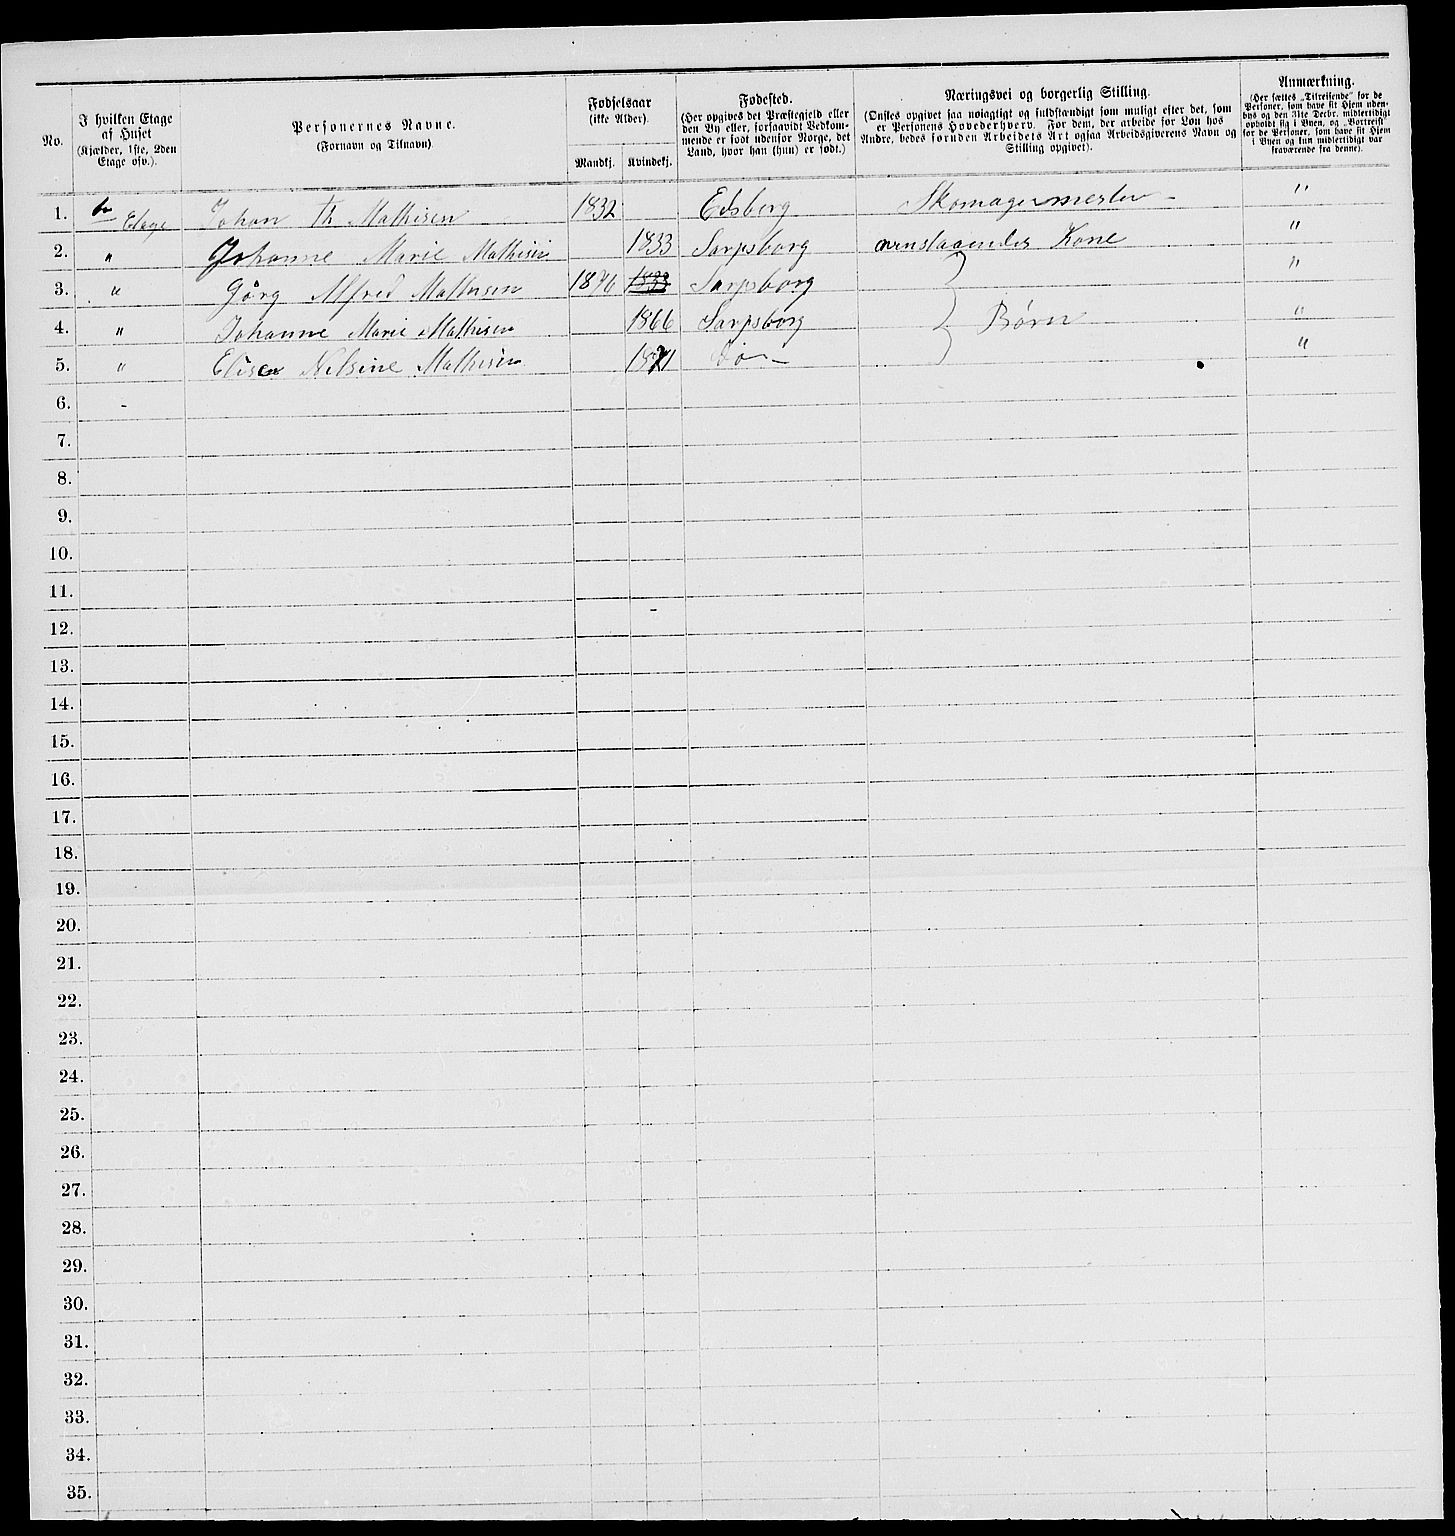 No.
I hvilken Etage af Huset (Kjælder, 1ste, 2den Etage osv.).
Personernes Navne. (Fornavn og Tilnavn).
Fødselsaar (ikke Alder).
Mandkj. Kvindekj.
Fødested. (Her opgives det Præstegjeld eller den By eller, forsaavidt Vedkommende er født udenfor Norge, det Land, hvor han (hun) er født.)
Næringsvei og borgerlig Stilling. (Ønskes opgivet saa nøiagtigt og fuldstændigt som muligt efter det, som er Personens Hovederhverv. For dem, der arbeide for Løn hos Andre, bedes foruden Arbeidets Art ogsaa Arbeidsgiverens Navn og Stilling opgivet).
Anmærkning. (Her sættes „Tilreisende“ for de Personer, som have sit Hjem udenbys og den 31te Decbr. midlertidigt opholdt sig i Byen, og „Bortreist“ for de Personer, som have sit Hjem i Byen og kun midlertidigt var fraværende fra denne).
1. Etage Johan Th Mathisen 1832 Edsberg Skomagermester "
2. " Johanne Marie Mathisen 1833 Sarpsborg ovenstaaendes Kone "
3. " Gørg Alfred Mathisen 1876 1833 Sarpsborg "
4. " Johanne Marie Mathisen 1866 Sarpsborg Børn "
5. " Elise Nilsine Mathisen 1871 Do "
6.
7.
8.
9.
10.
11.
12.
13.
14.
15.
16.
17.
18.
19.
20.
21.
22.
23.
24.
25.
26.
27.
28.
29.
30.
31.
32.
33.
34.
35.